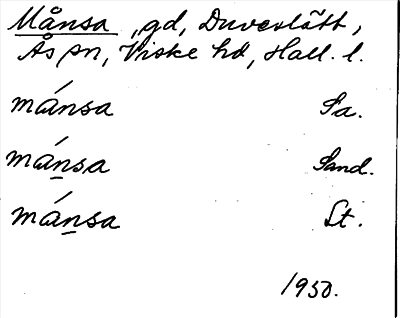 Månsa, gd, Duveslätt,
Ås sn, Viske hd, Hall. l.
mánsa Sa.
mánsa Sand.
mánsa St.
1950.